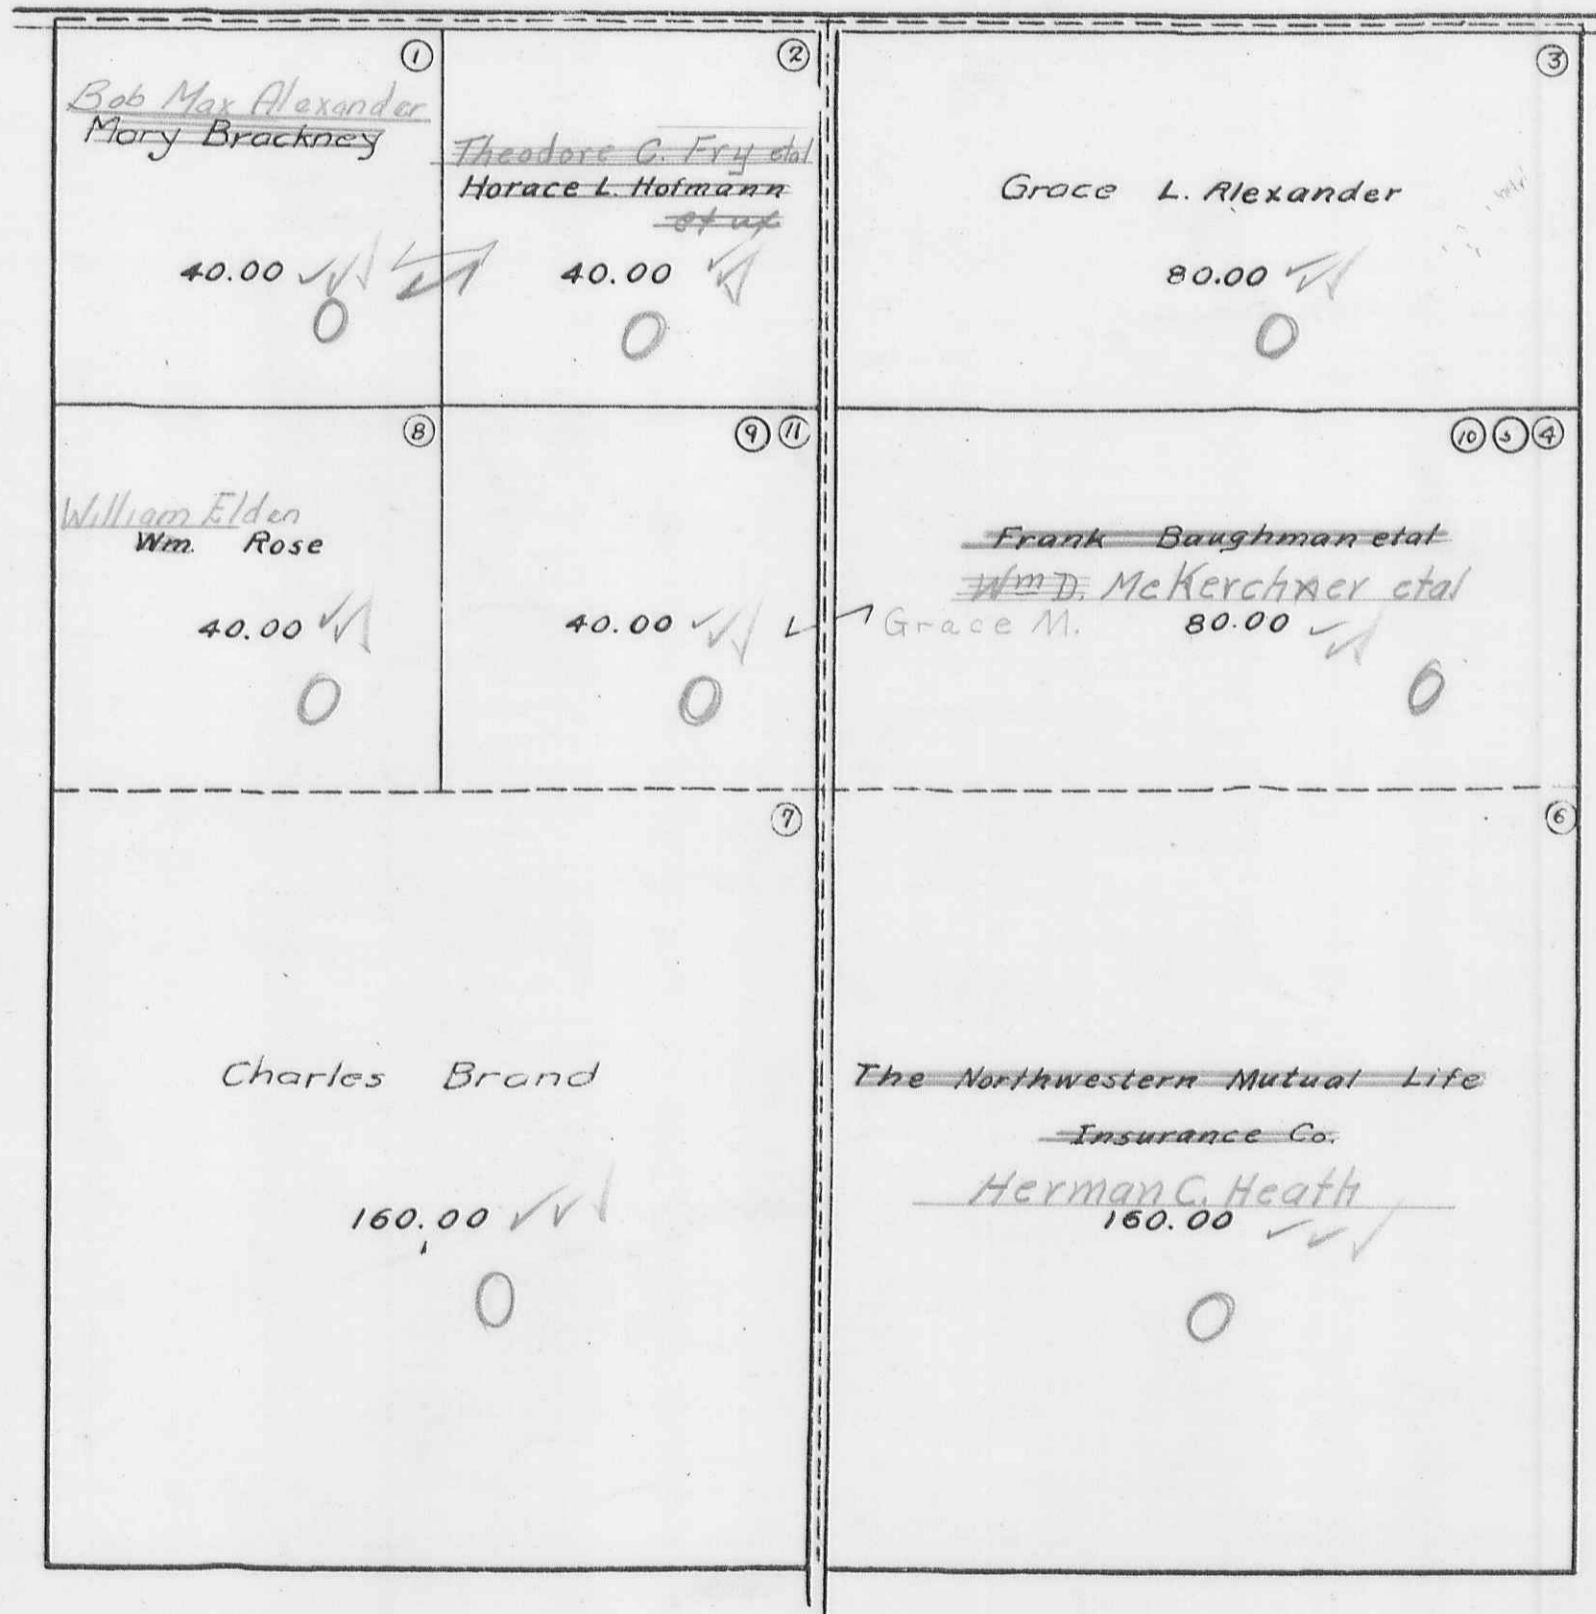 1
Bob Max Alexander
Mary Brackney
40.00
2
Theodore C. Fry etal
Horace L. Hofmann
et ux
40.00
3
Grace L. Alexander
80.00
8
William Elden
Wm. Rose
40.00
9 11
40.00
10 5 4
Frank Baughman etal
Wm D. McKerchner etal
Grace M. 80.00
7
Charles Brand
160.00
6
The Northwestern Mutual Life
Insurance Co.
Herman C. Heath
160.00